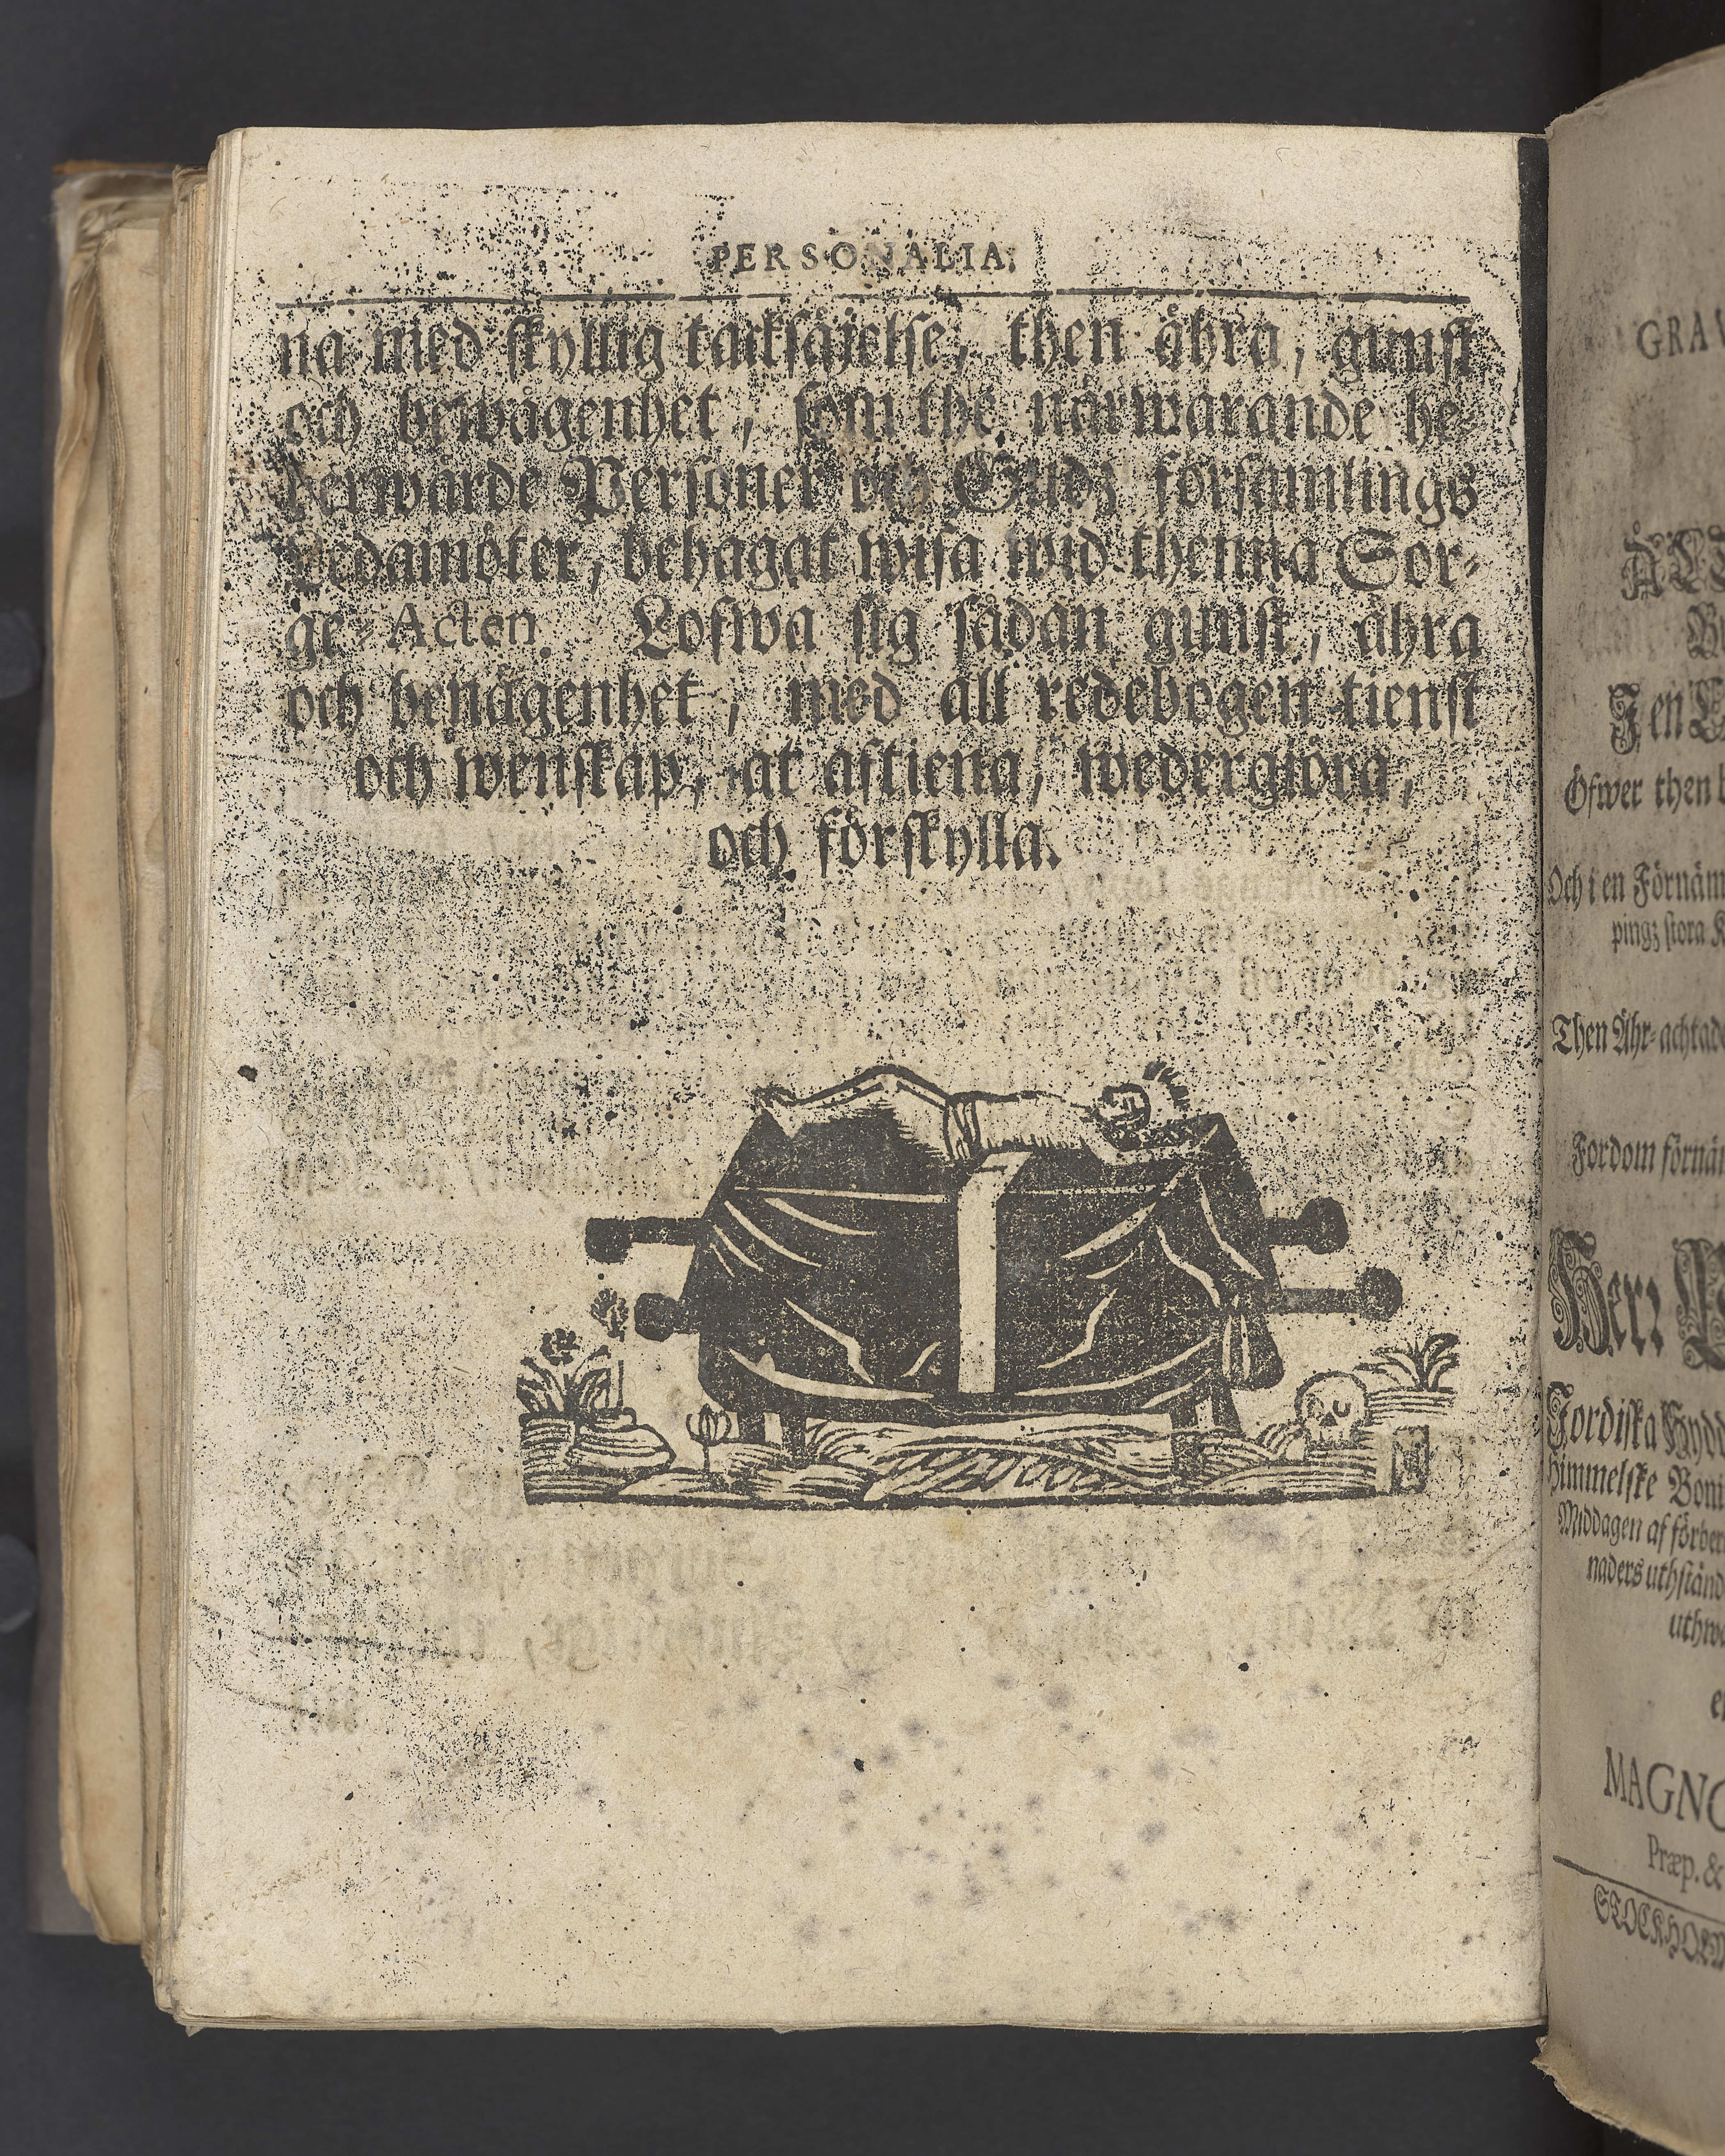 PERSONALIA.
na med skyllig tacksäjelse, then ähra, gunst
och bewågenhet, som the närwarande he-
derwärde Personer och Gudz församlings
Ledamöter, behagat wisa wid thenna Sor-
ge-Acten. Lofwa sig sådan gunst, ähra
och benägenhet, med all redebogen tienst
och wenskap, at aftiena, wedergiöra,
och förskylla.
GRAV
Öfwer then b
Och i en Förnäm
pingz stora K
Then Ähr-achtad
Fordom förnäm
Herr
Jordiska Hydd
himmelske Boni
Middagen af förber
naders uthständ
uthwa
MAGNO
Præp. &
STOCKHOLM